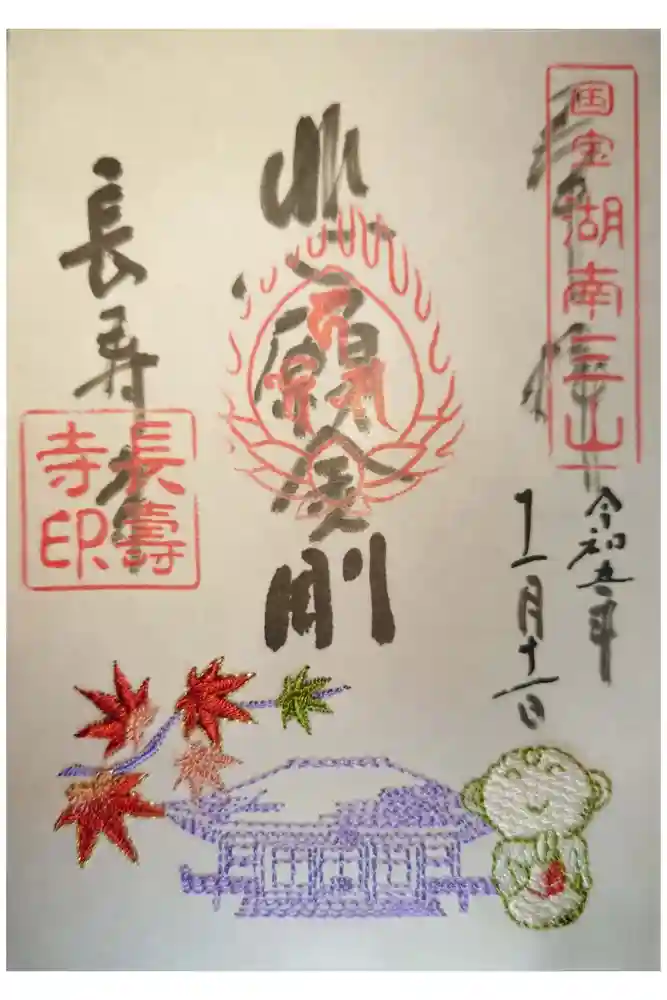 奉拝
国宝湖南三山
令和五年
十一月十一日
悲願金剛
長寿寺
長壽
寺印